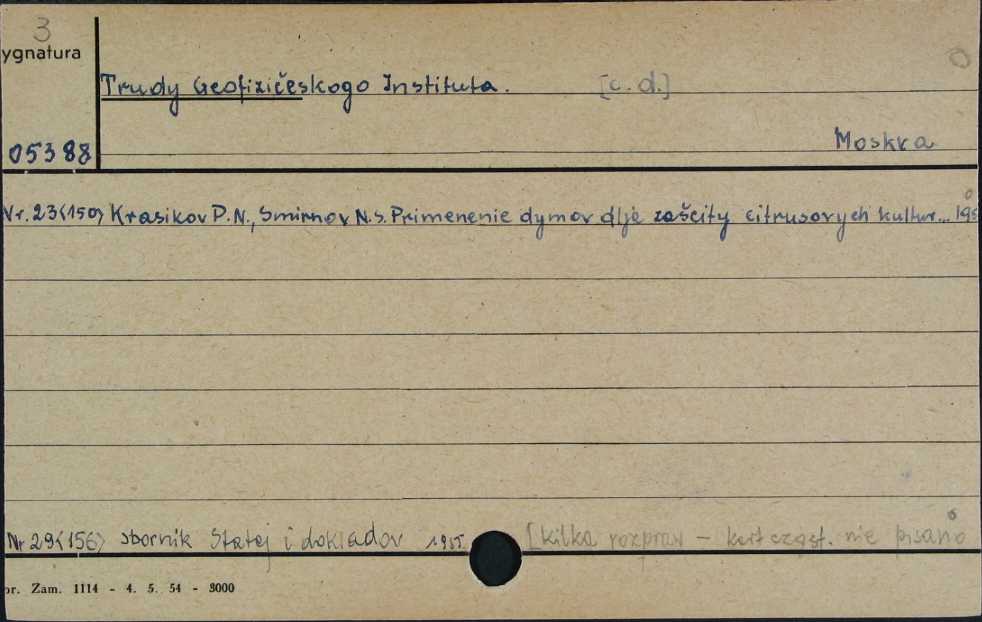 3
ygnatura
Trudy Geofizičeskogo Instituta. [c. d.]
Moskva
05388
Nr. 23(150) Krasikov P. N., Smirnov N. S. Primenenie dymov dlje zaščity citrusovych kultur... 195
Nr 29(156) sbornik Statej i dokladov 1955. [kilka rozpraw – kart cząst. nie pisano
or. Zam. 1114 - 4. 5. 54 - 3000